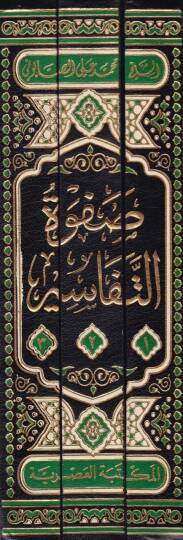 الشيخ محمد علي الصابوني
صفوة
التفاسير
١ ٢ ٣
المكتبة العصرية